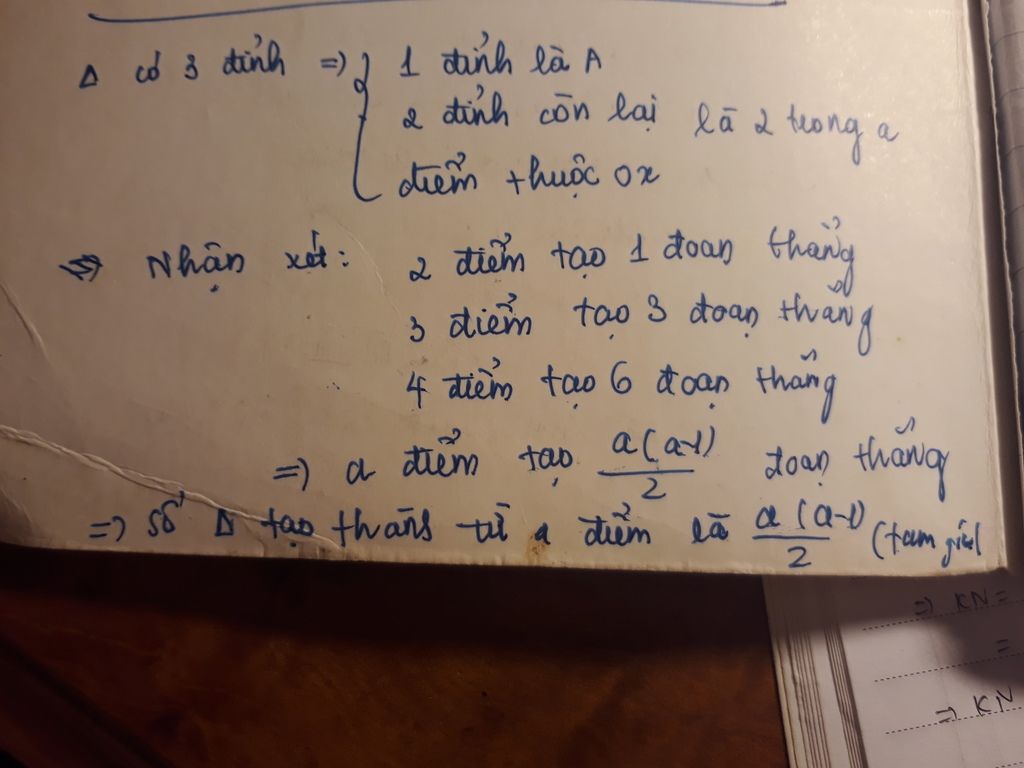 Δ có 3 đỉnh => { 1 đỉnh là A
2 đỉnh còn lại là 2 trong a
điểm thuộc Ox
=> Nhận xét: 2 điểm tạo 1 đoạn thẳng
3 điểm tạo 3 đoạn thẳng
4 điểm tạo 6 đoạn thẳng
=> a điểm tạo a(a-1)/2 đoạn thẳng
=> Số Δ tạo thành từ a điểm là a(a-1)/2 (tam giác)
=> KN =
=
=> KN